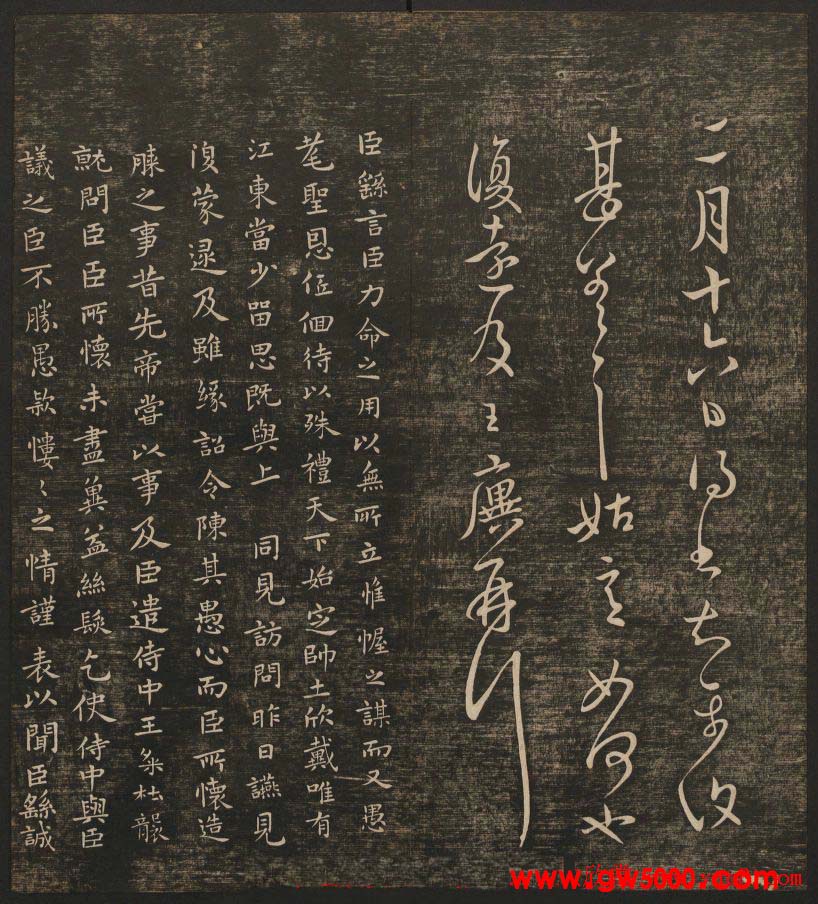 二月十六日得書知
甚 姑 如何也
復 及 王廙再
臣繇言臣力命之用以無所立惟幄之謀而又愚
耄聖恩低佪待以殊禮天下始定帥土欣戴唯有
江東當少留思既與上 同見訪問昨日讌見
復蒙逮及雖緣詔令陳其愚心而臣所懷造
膝之事昔先帝嘗以事及臣遣侍中王粲杜襲
就問臣臣所懷未盡冀益絲髮乞使侍中與臣
議之臣不勝愚款慺々之情謹 表以聞臣繇誠